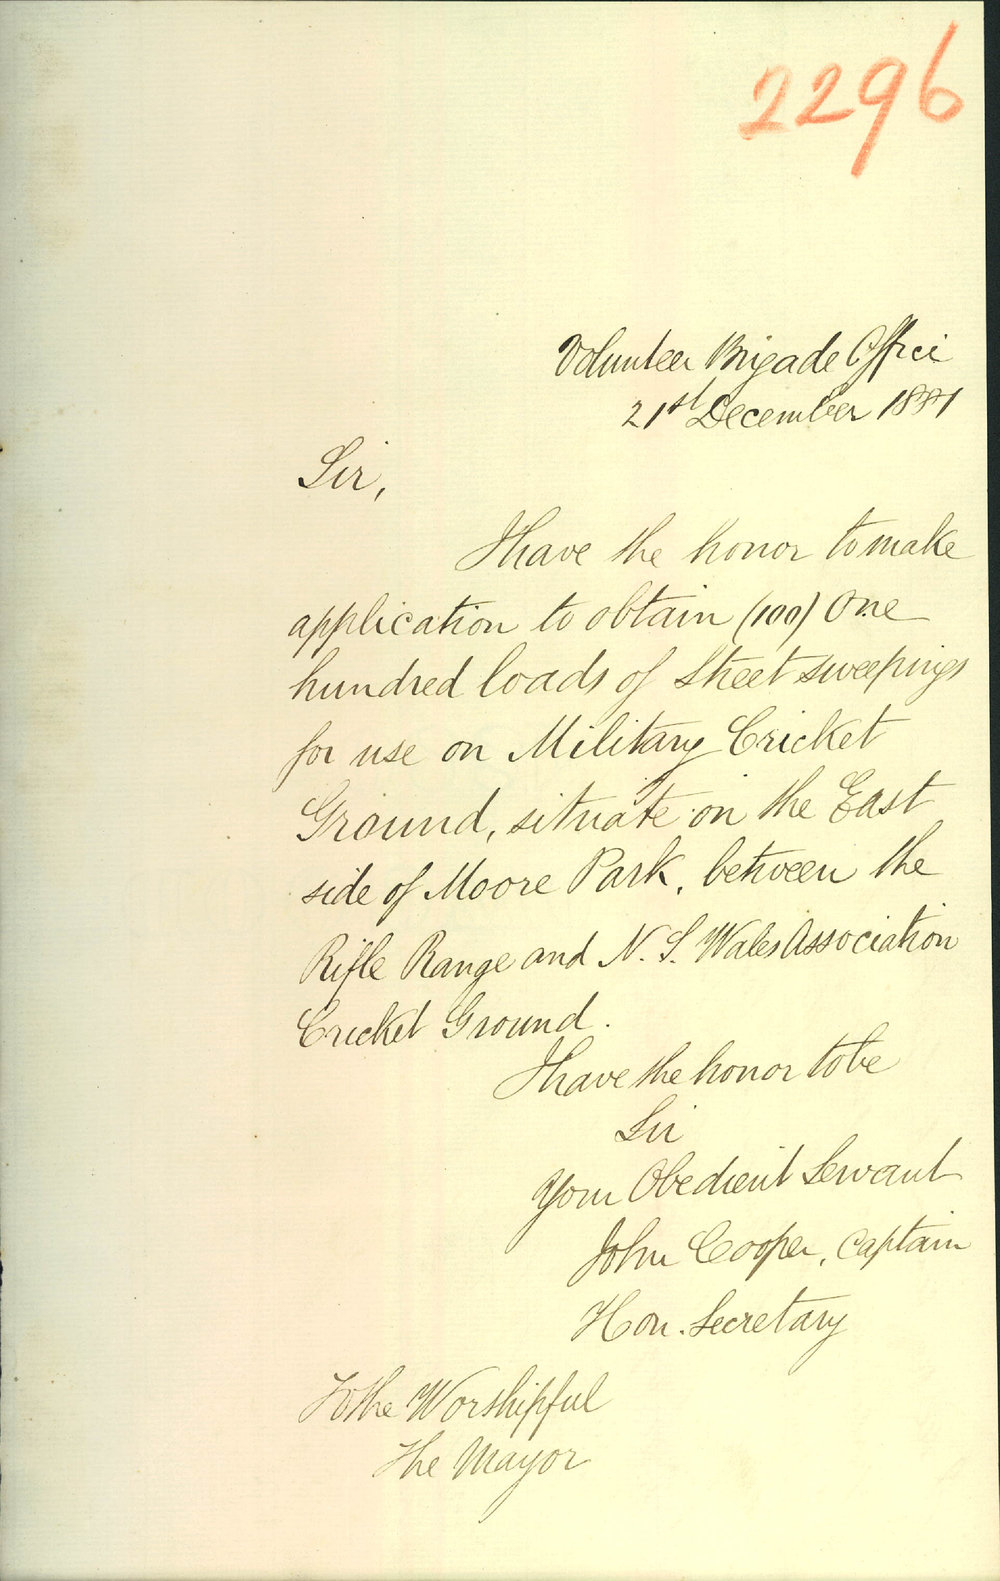 2296
Volunteer Brigade Office
21st December 1881
Sir,
I have the honor to make
application to obtain (100) One
hundred loads of Street sweepings
for use on Military Cricket
Ground, situate on the East
side of Moore Park, between the
Rifle Range and N. S. Wales Association
Cricket Ground.
I have the honor to be
Sir
Your Obedient Servant
John Cooper, Captain
Hon. Secretary
To the Worshipful
The Mayor